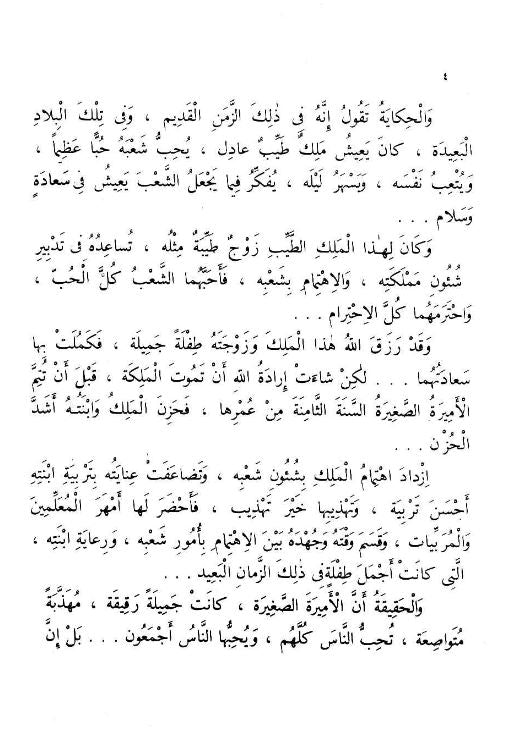 ٤
وَالْحِكَايَةُ تَقُولُ إِنَّهُ فِي ذٰلِكَ الزَّمَنِ الْقَدِيمِ ، وَفِى تِلْكَ الْبِلَادِ
الْبَعِيدَة ، كانَ يَعِيشُ مَلِكٌ طَيِّبٌ عادِل ، يُحِبُّ شَعْبَهُ حُبًّا عَظِيمًا ،
وَيُتْعِبُ نَفْسَه ، وَيَسْهَرُ لَيْلَه ، يُفَكِّرُ فِيما يَجْعَلُ الشَّعْبَ يَعِيشُ فى سَعادَةٍ
وَسَلَام . . .
وَكَانَ لِهٰذا الْمَلِكِ الطَّيِّبِ زَوْجٌ طَيِّبَةٌ مِثْلُه ، تُساعِدُهُ فى تَدْبِيرِ
شُئُونِ مَمْلَكَتِه ، وَالِاهْتِمامِ بِشَعْبِه ، فَأَحَبَّهُما الشَّعْبُ كُلَّ الْحُبّ ،
وَاحْتَرَمَهُما كُلَّ الِاحْتِرام . . .
وَقَدْ رَزَقَ اللهُ هٰذا الْمَلِكَ وَزَوْجَتَهُ طِفْلَةً جَمِيلَة ، فَكَمُلَتْ بِها
سَعادَتُهُما . . . لٰكِنْ شاءَتْ إِرادَةُ اللهِ أَنْ تَمُوتَ الْمَلِكَة ، قَبْلَ أَنْ تُتِمَّ
الْأَمِيرَةُ الصَّغِيرَةُ السَّنَةَ الثَّامِنَةَ مِنْ عُمْرِها ، فَحَزِنَ الْمَلِكُ وَابْنَتُهُ أَشَدَّ
الْحُزْن . . .
اِزْدادَ اهْتِمامُ الْمَلِكِ بِشُئُونِ شَعْبِه ، وَتَضاعَفَتْ عِنايَتُه بِتَرْبِيَةِ ابْنَتِهِ
أَحْسَنَ تَرْبِيَة ، وَتَهْذِيبِها خَيْرَ تَهْذِيب ، فَأَحْضَرَ لَها أَمْهَرَ الْمُعَلِّمِينَ
وَالْمُرَبِّيات ، وَقَسَمَ وَقْتَهُ وَجُهْدَهُ بَيْنَ الِاهْتِمامِ بِأُمُورِ شَعْبِه ، وَرِعايَةِ ابْنَتِه ،
الَّتِى كانَتْ أَجْمَلَ طِفْلَةٍ فى ذٰلِكَ الزَّمانِ الْبَعِيد . . .
وَالْحَقِيقَةُ أَنَّ الْأَمِيرَةَ الصَّغِيرَة ، كانَتْ جَمِيلَةً رَقِيقَة ، مُهَذَّبَةً
مُتَواضِعَة ، تُحِبُّ النَّاسَ كُلَّهُم ، وَيُحِبُّها النَّاسُ أَجْمَعُون . . . بَلْ إِنَّ